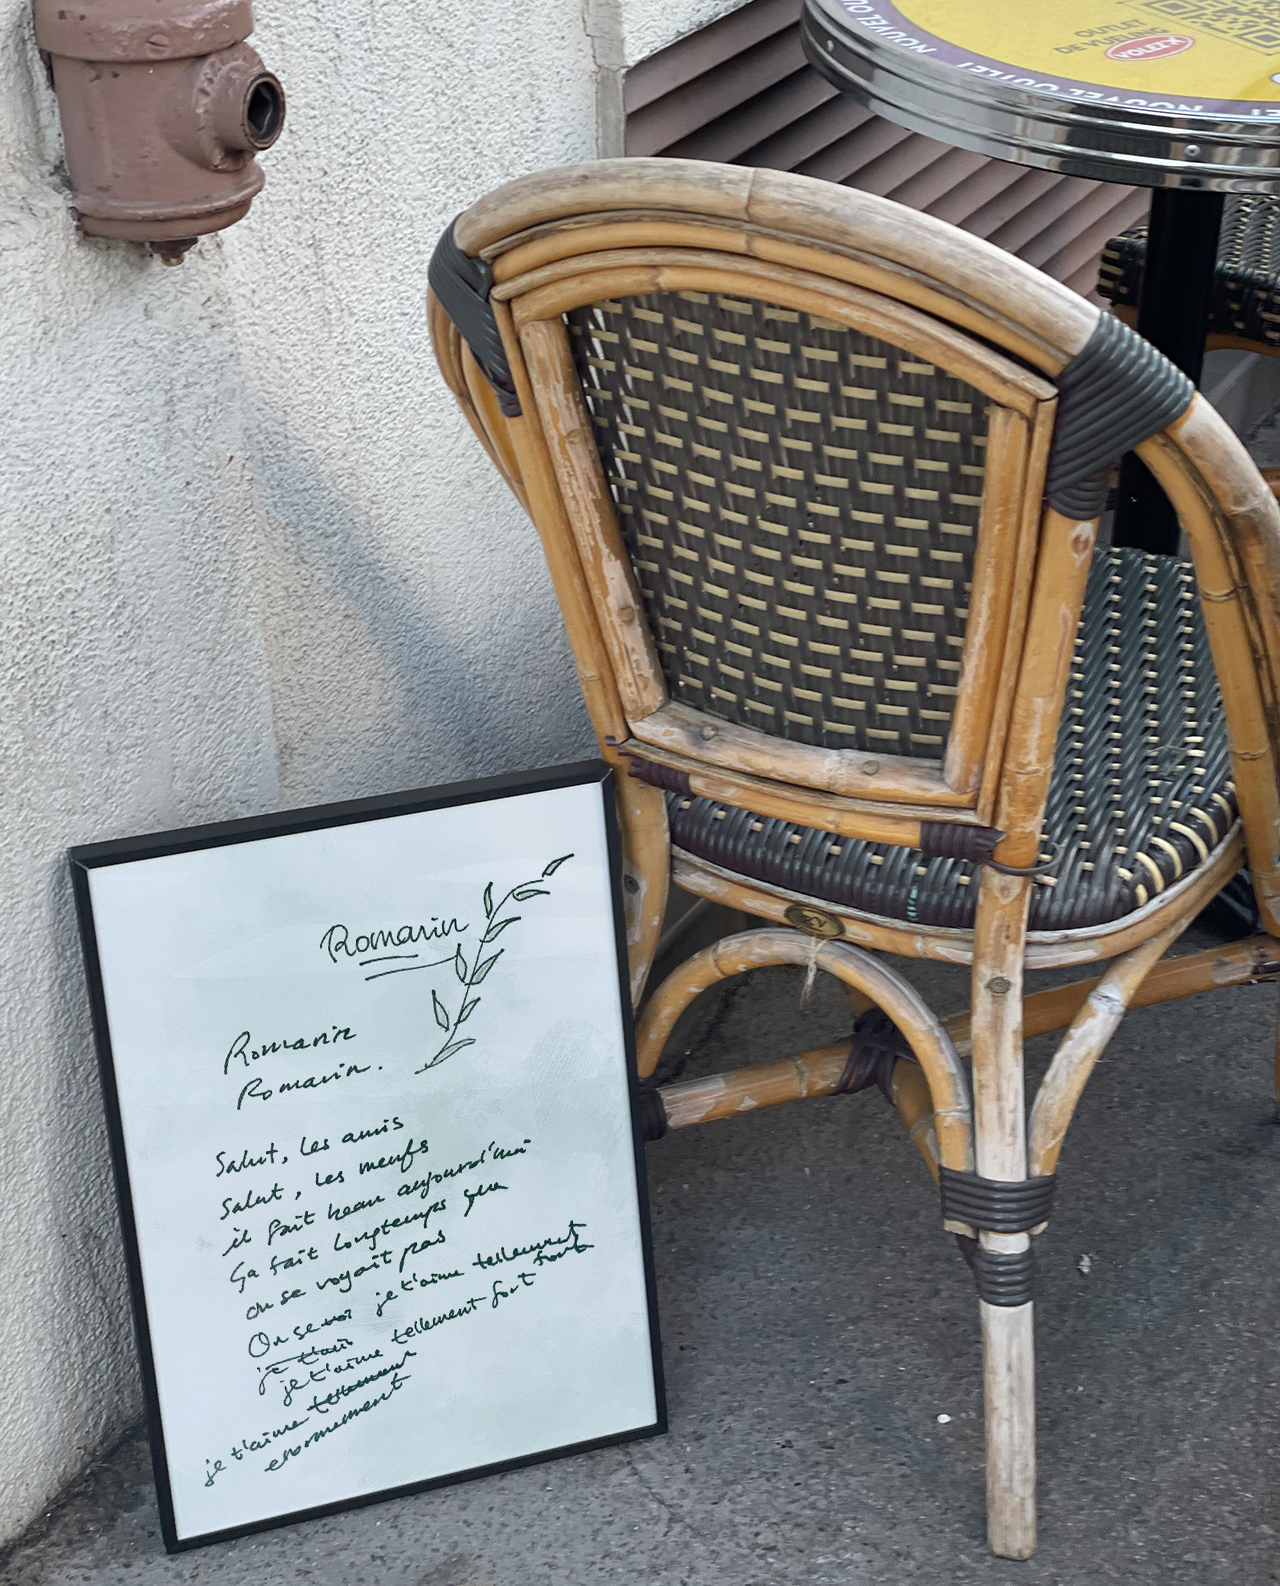 NOUVEL OUTLET
NOUVEL OUTLET
OUTLET
DE VUELING
VOLEZ
Romarin
Romarin
Romarin.
Salut, les amis
Salut, les meufs
il fait beau aujourd'hui
Ça fait longtemps que
on se voyait pas
On se voi je t'aime tellement
fort
je t'aim
je t'aime tellement fort
je t'aime tellement
enormement